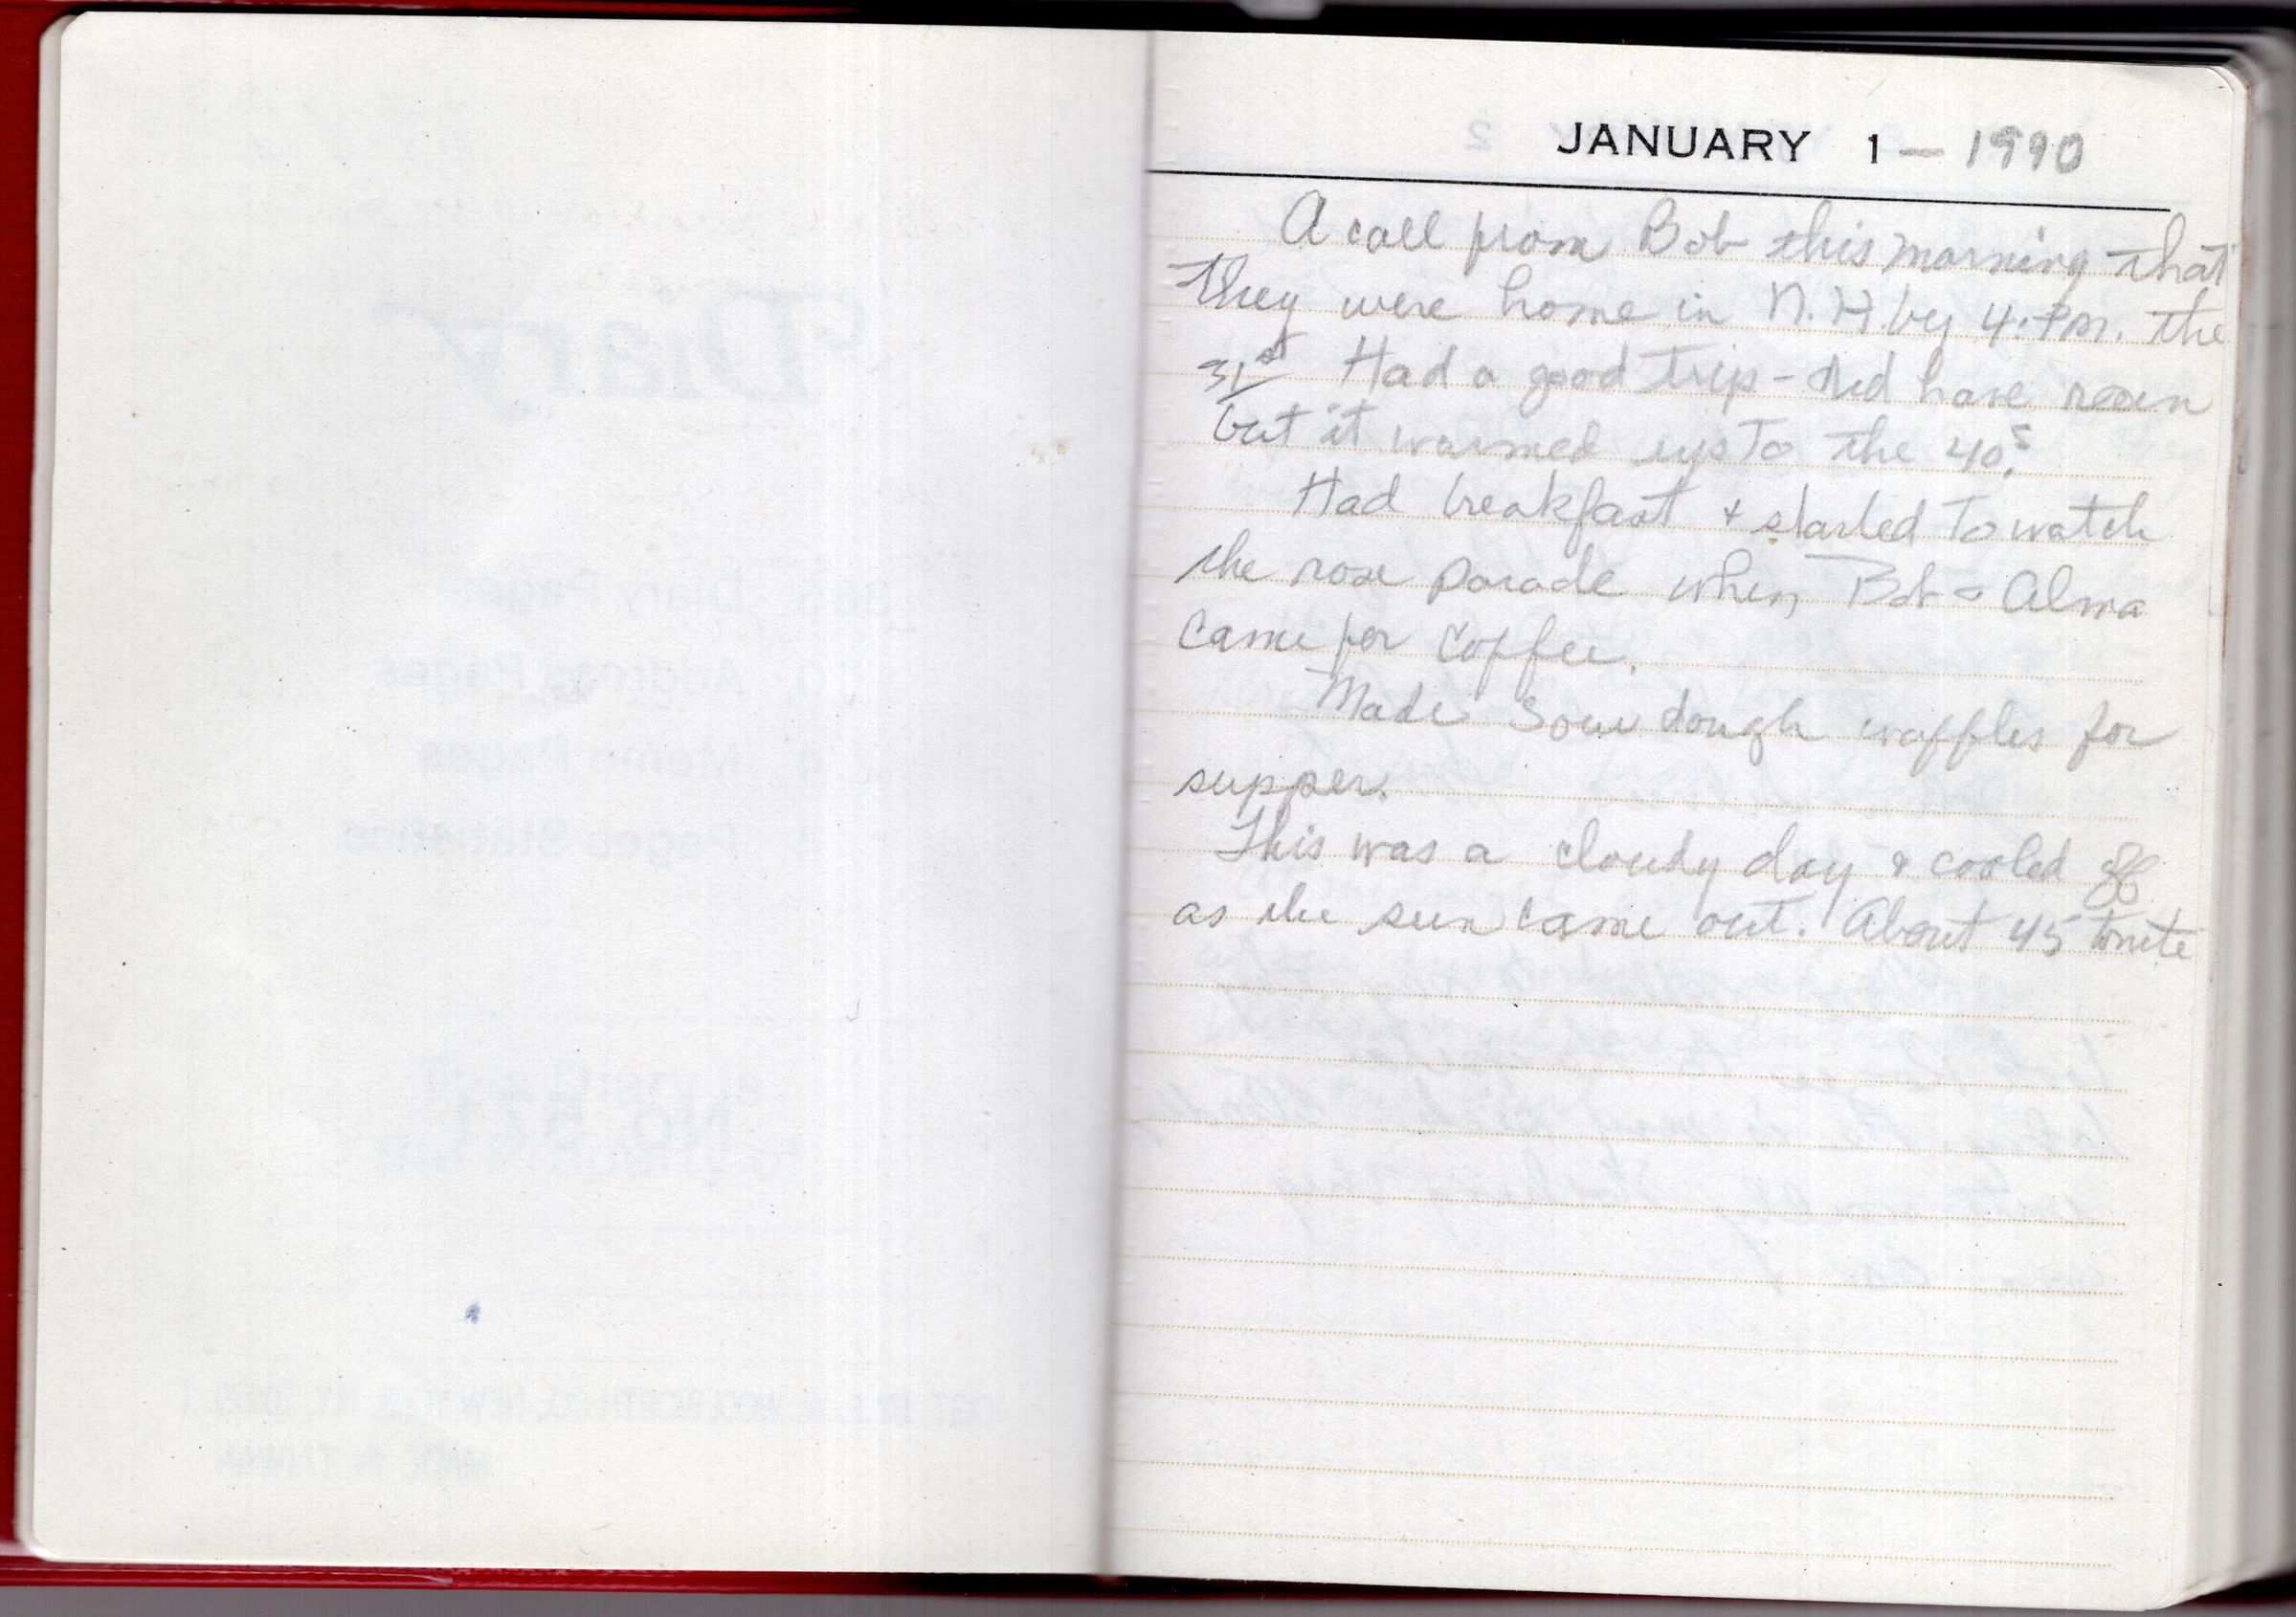 JANUARY 1 — 1990
A call from Bob this morning that
they were home in N.H. by 4. P.m. the
31st Had a good trip - did have rain
but it warmed up to the 40s.
Had breakfast + started to watch
the rose parade when Bob & Alma
came for coffee.
Made sour dough waffles for
supper.
This was a cloudy day & cooled off
as the sun came out. About 45 tonite